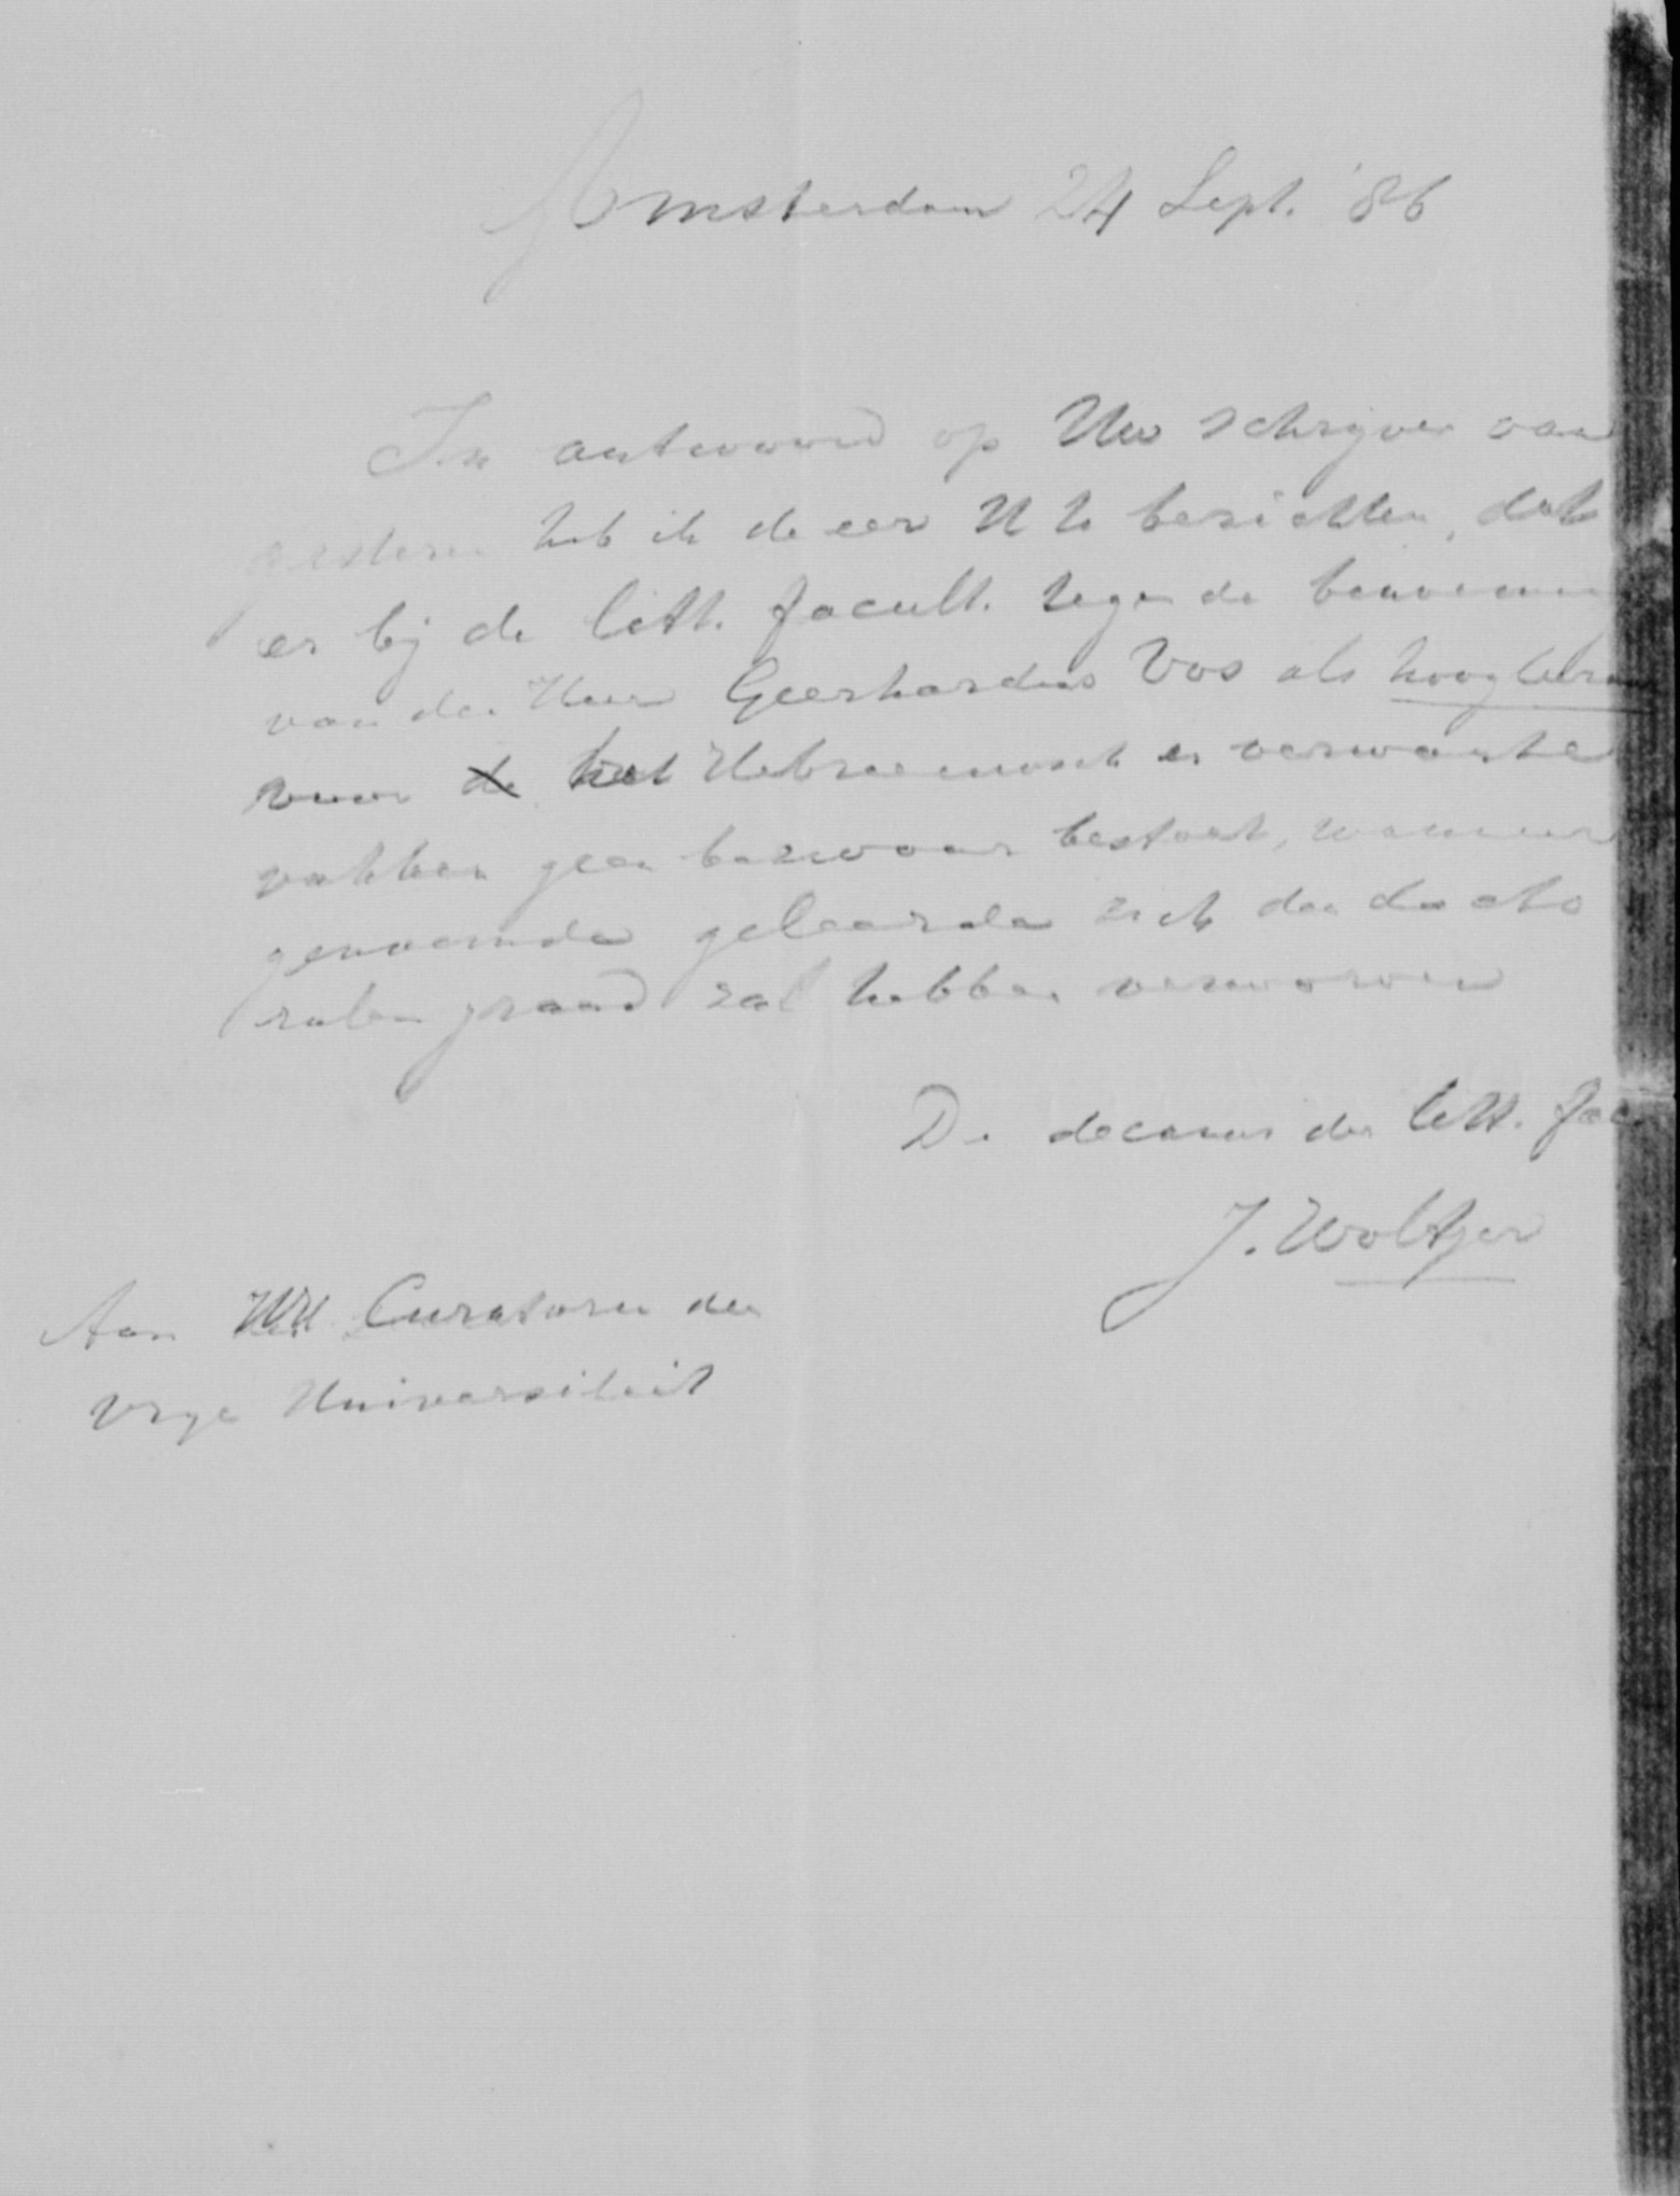 Amsterdam 24 Sept. '86
In antwoord op Uw schrijven van
gisteren heb ik de eer U te berichten, dat
er bij de litt. facult. tegen de benoeming
van den Heer Geerhardus Vos als hoogleraar
voor de het Hebreeuwsch en verwante
vakken geen bezwaar bestaat, wanneer
genoemde geleerde zich den docto
ralen graad zal hebben verworven
De decanus der litt. fac.
J. Woltjer
Aan HH Curatoren der
Vrije Universiteit